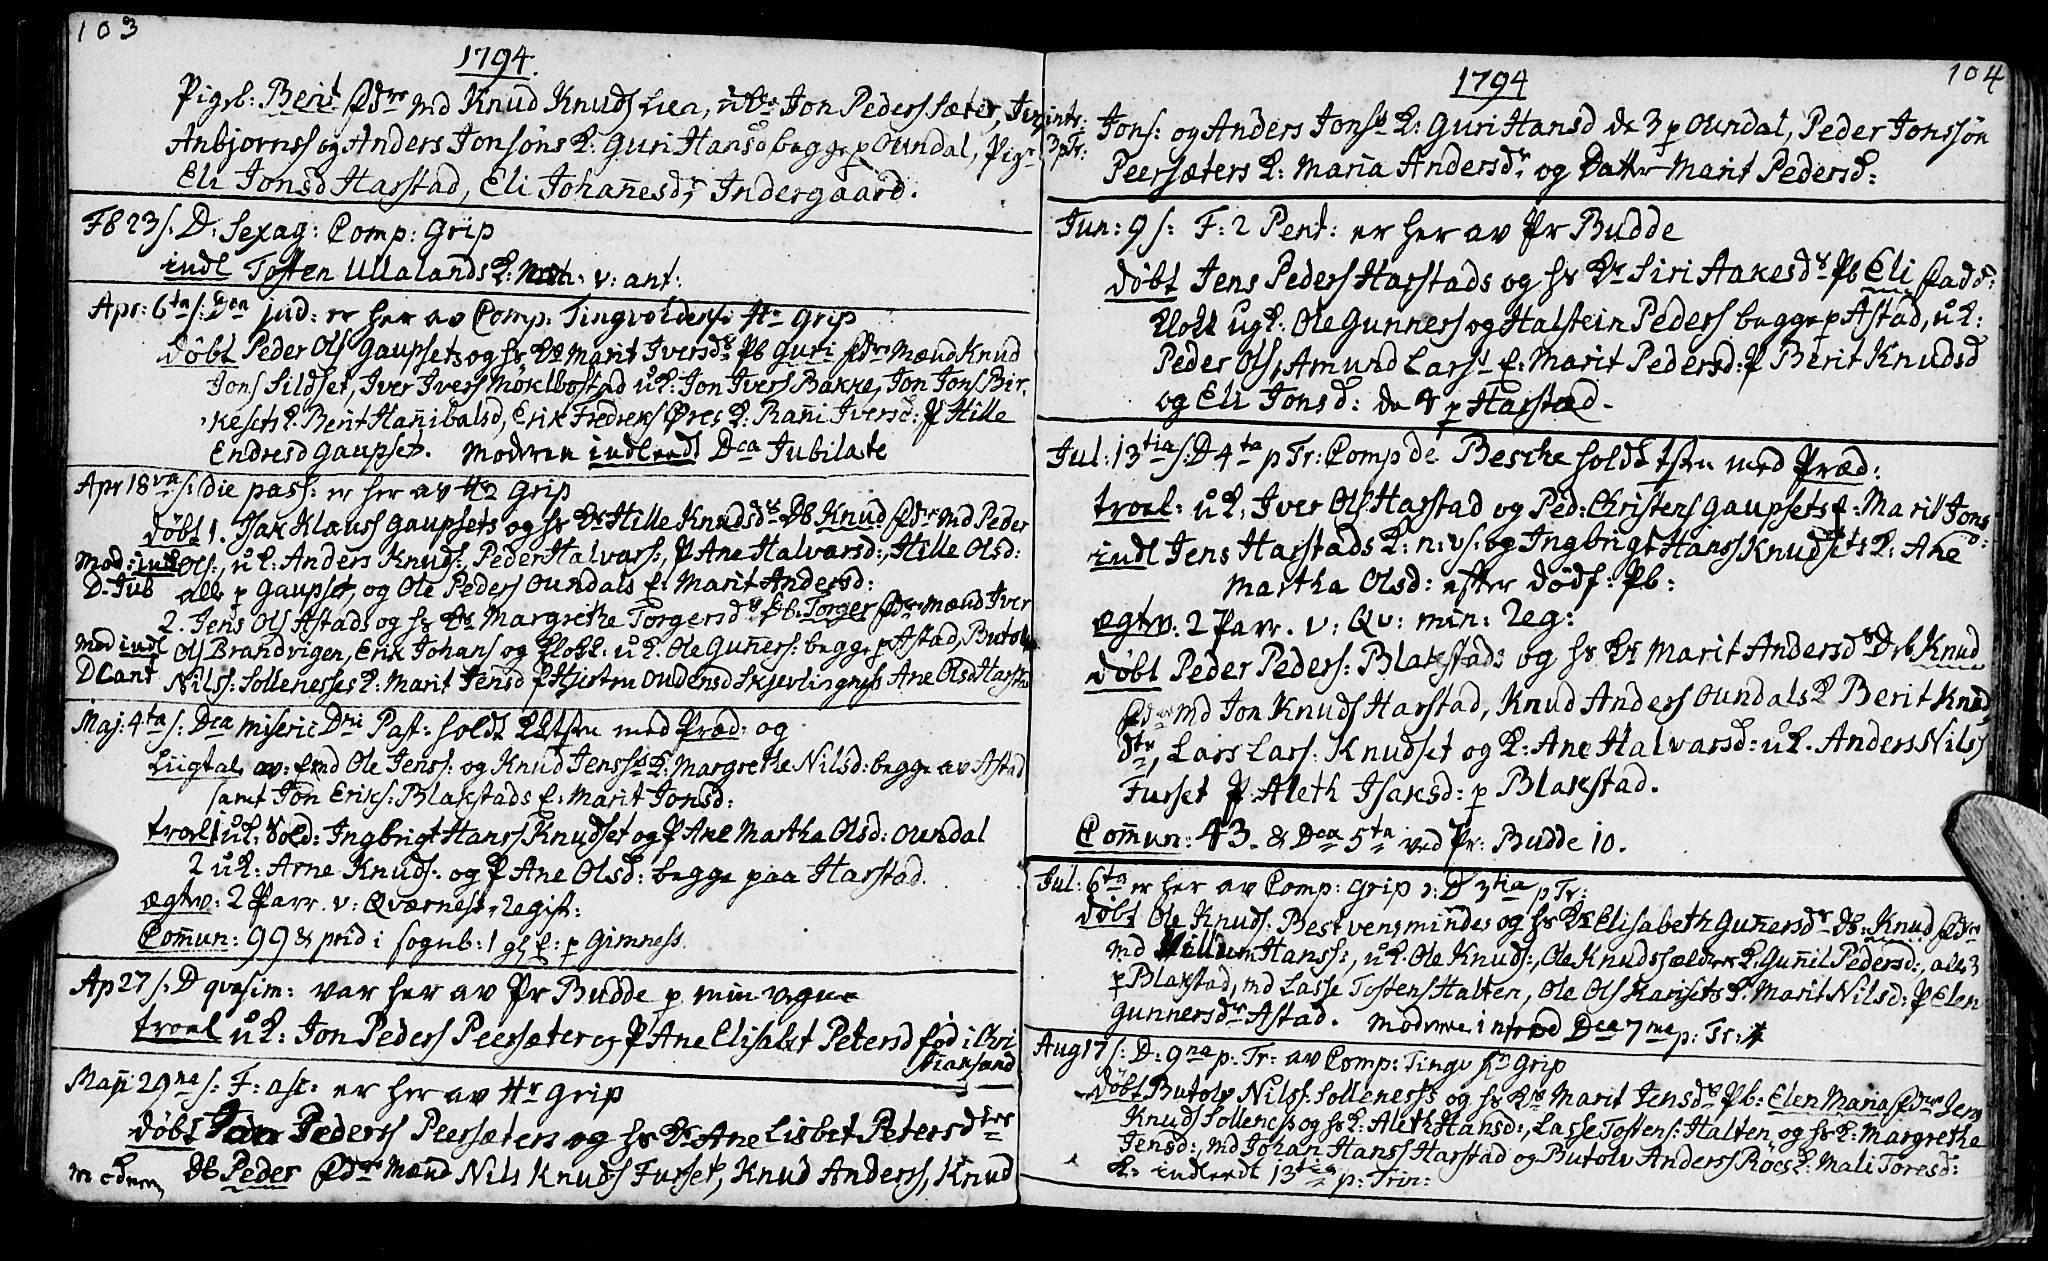 103
1794.
Pigeb: Berit Fdre md Knud Knuds Lien, uk: Jon Peders sæter, Jens
Anbjørnss og Anders Jonsøns K: Guri Hansd begge p Oundal, Pige
Eli Jonsd Harstad, Eli Johannesdr Indergaard.
Fb 23 s: D. Sexag: Comp: Grip
indl Tosten Ullalands K: v: ant:
Apr: 6ta s: Dca jud: er her av Comp. Tingvolders: Hr Grip
døbt Peder Ols Gaupsets og hs Ks Marit Iversdr Pb Guri Fdre Mænd Knud
Jons Sildset, Iver Ivers Møklbostad uk: Jon Ivers Bakke, Jon Jons Bir-
kesets K. Berit Hannibalsd, Erik Fredriks Øres K: Ranni Iversd: P Hille
Endresd Gaupset. Modren indleedt Dca Jubilate
Apr 18va s: die pass: er her av Hr Grip
døbt 1. Isak Klauss Gaupsets og hs Ks Hille Knudsdr Db Knud Fdre Md Peder
Mod: indl Ols:, uk: Anders Knuds:, Peder Halvars:, P Ane Halvarsd:, Hille Olsd:
D. Jub alle p Gaupset, og Ole Peders Oundals K: Marit Andersd:
2. Jens Ols Astads og hs Ks Margrethe Torgersdr Db: Torger Fdre Mænd Iver
Mod indl Ols Brandvigen, Erik Johans og Klokk: uk. Ole Guners: begge p Astad, Butolv
D Cant Nilss: Sollenesses K: Marit Jensd P Kjersten Oudensd Skjevlingnes Ane Olsd Harstad
Maj: 4ta s: Dca Miseric Dni Past: holdt tsten med Præd: og
Liigtale av: Emd Ole Jenss: og Knud Jenss K: Margrethe Nilsd: begge av Astad
samt Jon Eriks: Blakstads K: Marit Jonsd:
trol 1 uk. Sold: Ingbrigt Hanss Knudset og P Ane Martha Olsd: Oundal
2 uk: Arne Knuds: og P Ane Olsd: begge paa Harstad.
ægtv: 2 Parr. v: Qværness Regist:
Comun: 99 & prid i sogneb: 1 gl K: p Gimness.
Ap 27 s: D qvasim: var her av Pr Budde p min vegne
trol uk: Jon Peders Peersæter og P Ane Elisabet Petersd fød i Chri
stiansund
Maji: 29na s: F: asc: er her av Hr Grip
døbt Jon Peders Peersæters og hs Ks Ane Lisbet Petersdtrs
Db Peder Fdre Mænd Nils Knuds Furset, Knud Anderss, Knud
104
1794
Jons: og Anders Jonss K: Guri Hansd de 3 p Oundal, Peder Jonssøn
Peersæters K: Maria Andersdr og Datter Marit Pedersd:
Jun: 9 s: F: 2 Pent: er her av Pr Budde
døbt Jens Peders Harstads og hs Ks Siri Aakesdr Pb Eli Fadd:
Klokk ugk: Ole Gunners og Halstein Peders begge p Astad, uk:
Peder Ols, Amund Larss K: Marit Pedersd: P Berit Knudsd
og Eli Jonsd: de p Harstad.
Jul: 13tia s: D 4ta p Tr: Comp de Besche holdt tsten med Præd:
trol: uk, Iver Ols Harstad og Ped: Christens Gaupsets K: Marit Jonsd:
indl Jens Harstads K: n: v: og Ingbrigt Hanss Knudsets K: Ane
Martha Olsd: efter dødf: Pb:
ægtv: 2 Parr. v: Qv: min: Reg:
døbt Peder Peders: Blakstads og hs Ks Marit Andersdr Drb Knud
Fdre Md Jon Knuds Harstad, Knud Anders Oundals K Berit Knud
dtr, Lars Lars: Knudset og K: Ane Halvarsd: uk. Anders Nilss
Furset P. Aleth Isaksd: p Blakstad.
Comun: 43. & Dca 5ta ved Pr: Budde 10.
Jul: 6ta er her av Comp: Grip D 3tia p Tr:
døbt Ole Knuds: Bestvensmindes og hs Ks Elisabeth Gunersdr Db: Knud Fdre
Md Villum Hanss:, uk. Ole Knuds:, Ole Knuds K: Gunil Pedersd:, alle 3
p Blakstad, md Lasse Tostens Halten, Ole Ols Karisets K. Marit Nilsd: P Elen
Gunnersdr Astad. Modren introd Dca 7ma p: Tr:
Aug 17 s: D: 9na p: Tr: av Comp: Tingv Hr Grip
døbt Butolv Nilss: Sollenesss og hs Ks Marit Jensdr Pb: Elen Maria Fdre Jens
Knuds Sollenes og hs K: Aleth Hansd:, Lasse Tostens: Halten og hs K: Margrethe
Jensd:, md Johan Hanss Harstad og Butolv Anders Røes K: Mali Toresd:
K: indleedt 13tia p: Trin: